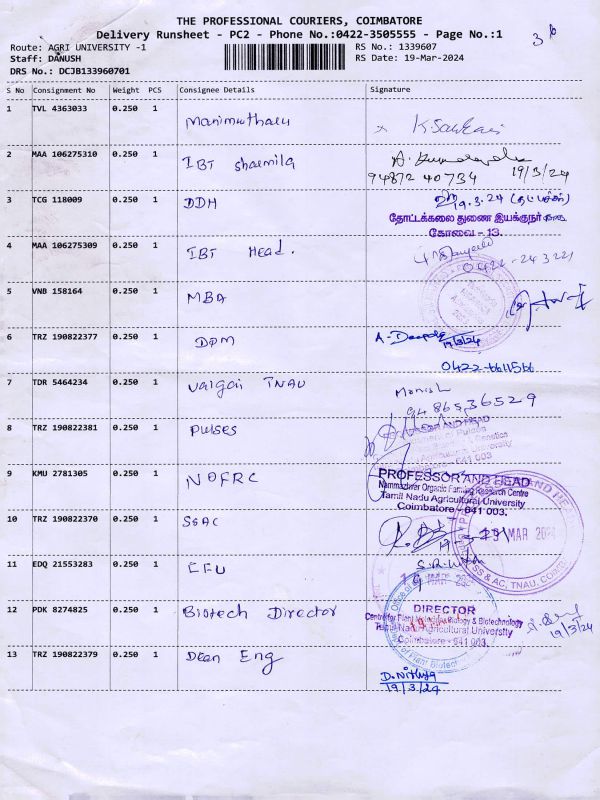 THE PROFESSIONAL COURIERS, COIMBATORE
Delivery Runsheet - PC2 - Phone No.:0422-3505555 - Page No.:1
Route: AGRI UNIVERSITY -1 RS No.: 1339607
Staff: DANUSH RS Date: 19-Mar-2024
DRS No.: DCJB133960701
S No Consignment No Weight PCS Consignee Details Signature
1 TVL 4363033 0.250 1 Manimuthalu
2 MAA 106275310 0.250 1 IBT sharmila
94872 40734 19/3/24
3 TCG 118009 0.250 1 DDH 19.3.24
தோட்டக்கலை துணை இயக்குநர்
கோவை - 13.
4 MAA 106275309 0.250 1 IBT Head.
0422-24 3221
5 VNB 158164 0.250 1 MBA
6 TRZ 190822377 0.250 1 DPM A-Deepa
19/3/24
0422-6611566
7 TDR 5464234 0.250 1 Valgai TNAU
94 86536529
8 TRZ 190822381 0.250 1 Pulses
9 KMU 2781305 0.250 1 NOFRC PROFESSOR AND HEAD
Nammazhvar Organic Farming Research Centre
Tamil Nadu Agricultural University
Coimbatore - 641 003.
10 TRZ 190822370 0.250 1 SSAC
MAR
SS & AC, TNAU, COIMB
11 EDQ 21553283 0.250 1 EFU
12 PDK 8274825 0.250 1 Biotech Director DIRECTOR
Centre for Plant Molecular Biology & Biotechnology
Tamil Nadu Agricultural University
Coimbatore - 641 003.
19/3/24
13 TRZ 190822379 0.250 1 Dean Eng
D. Nithya
19/3/24